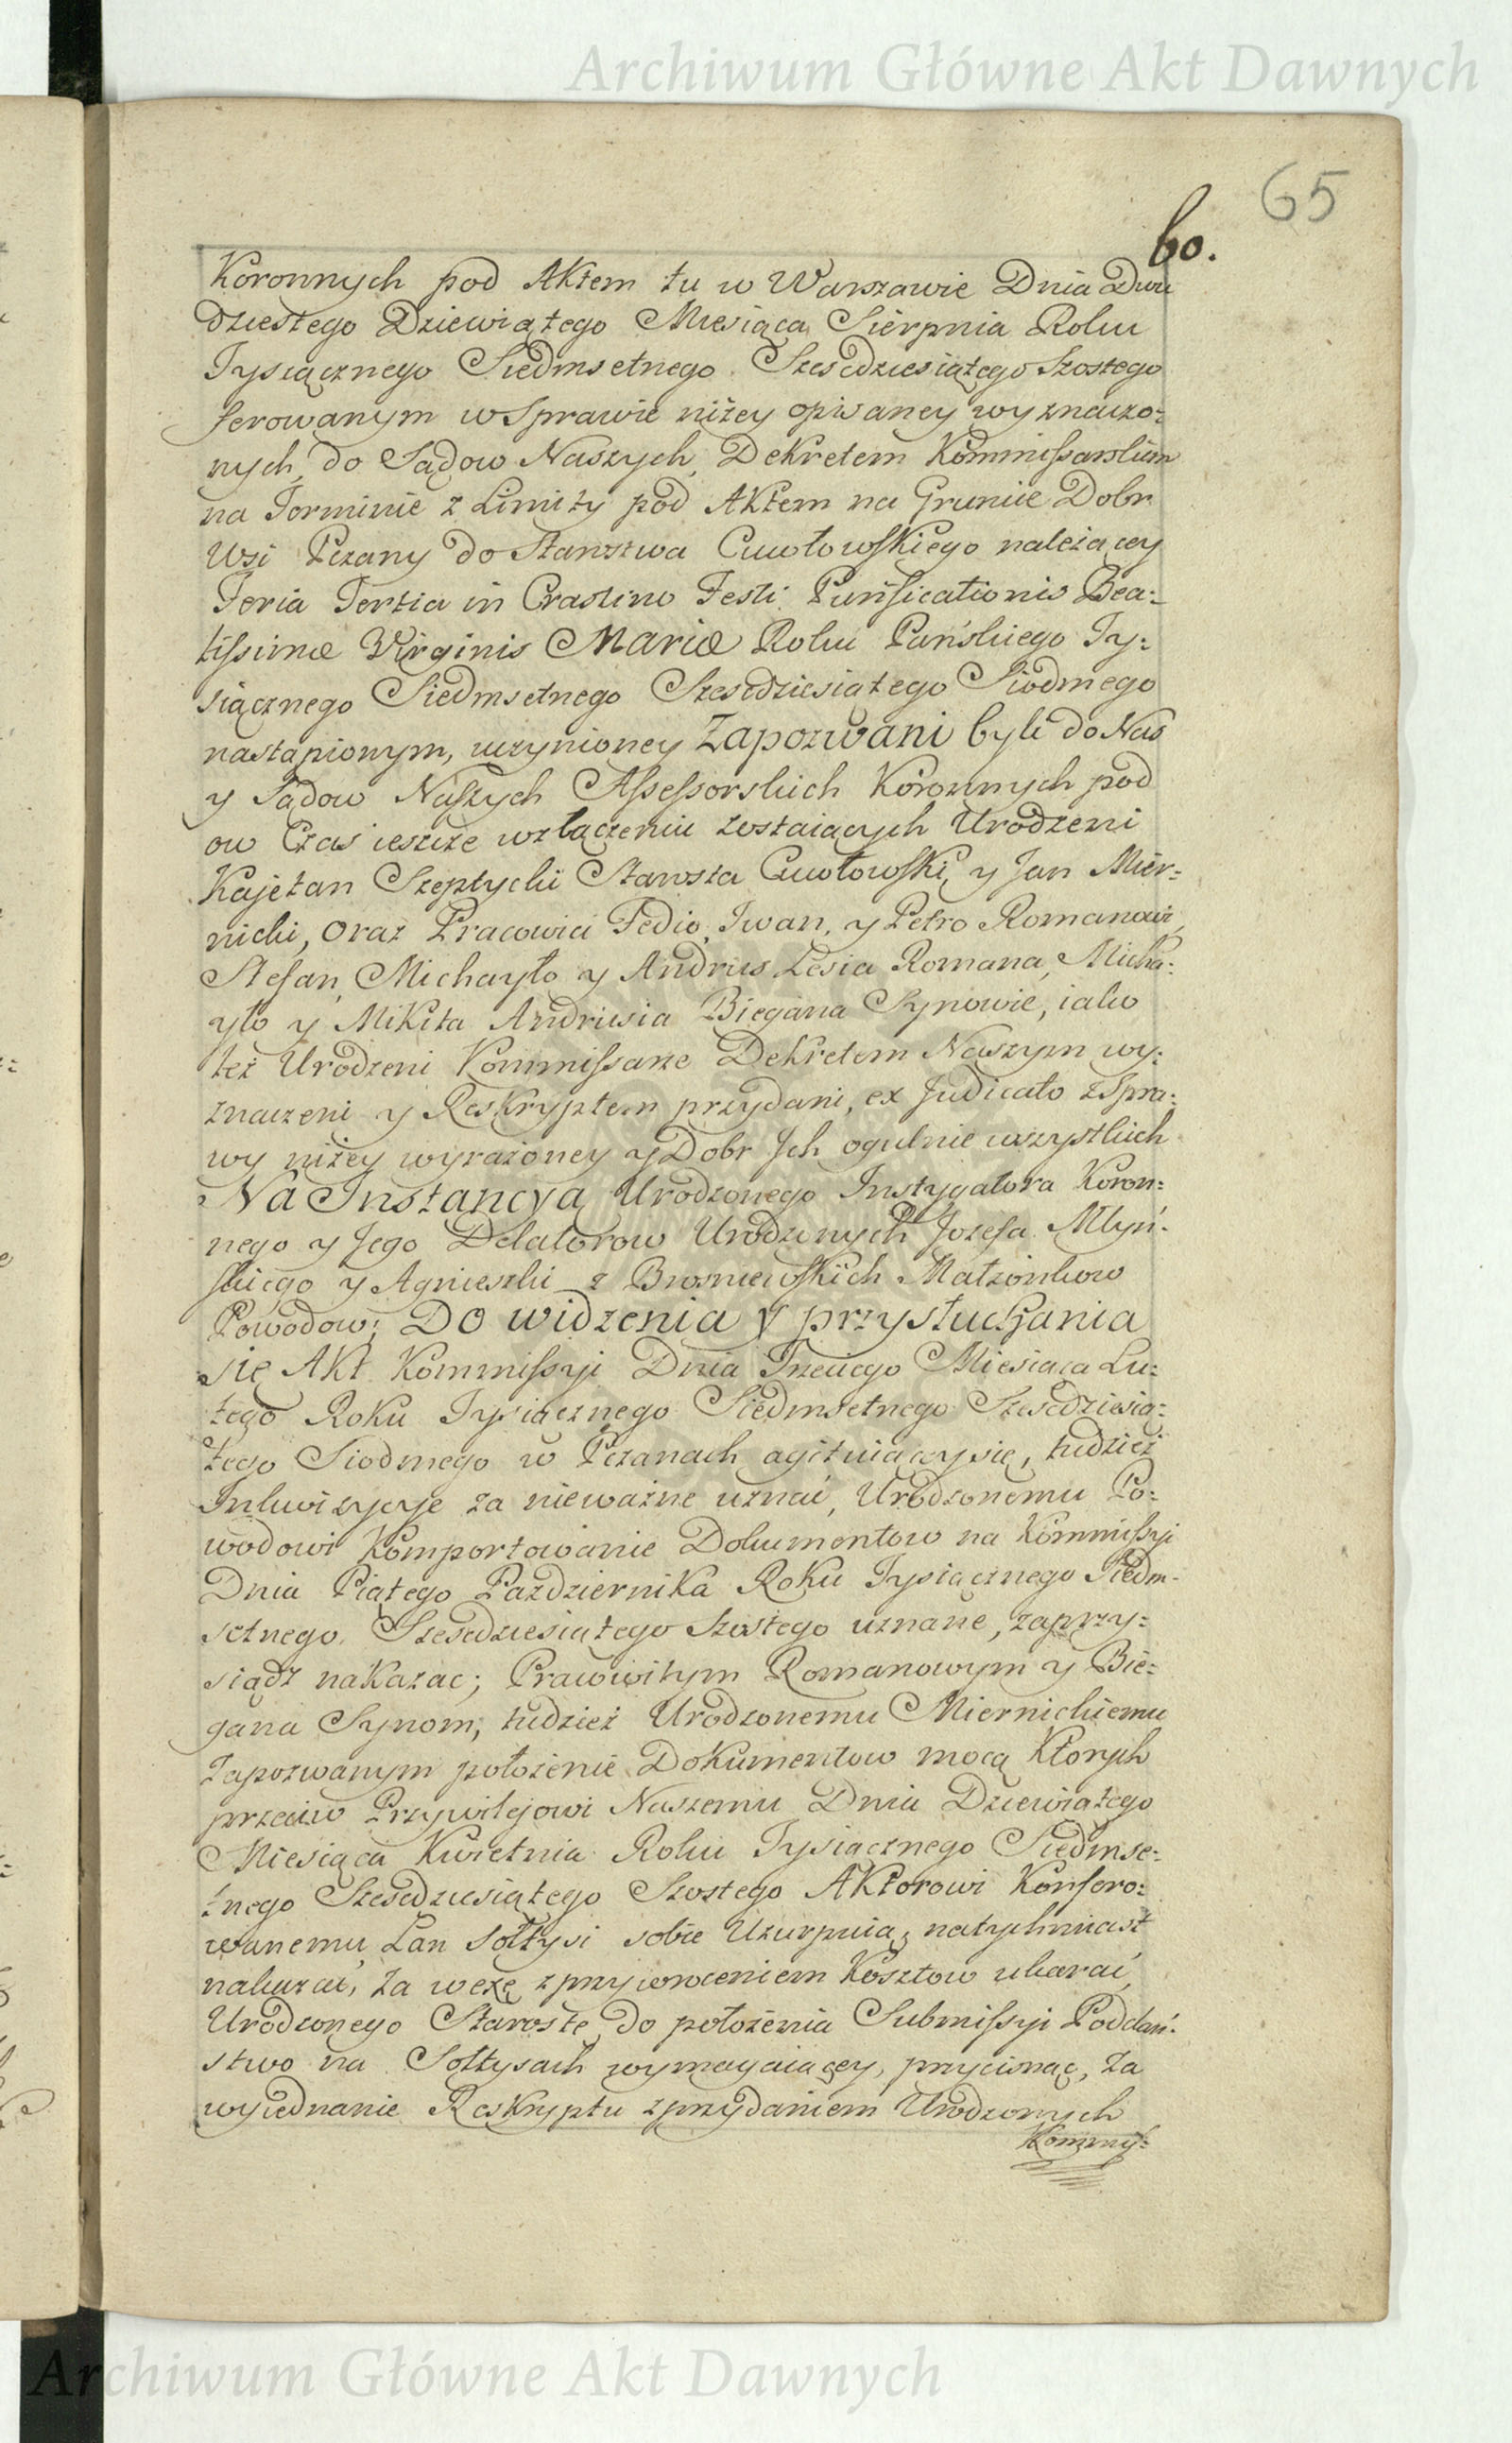 Archiwum Główne Akt Dawnych
65
60.
Koronnych pod Aktem tu w Warszawie Dnia Dwu
dziestego Dziewiątego Miesiąca Sierpnia Roku
Tysiącznego Siedmsetnego Szescdziesiątego Szostego
ferowanym w Sprawie niżey opisaney wyznaczo:
nych, do Sądow Naszych, Dekretem Kommissarskim
na Terminie z Limity pod Aktem na Gruncie Dobr
Wsi Pczany do Starostwa Cucułowskiego należącey
Feria Tertia in Crastino Festi Purificationis Bea:
tissimæ Virginis Mariæ Roku Pańskiego Ty:
siącznego Siedmsetnego Szescdziesiątego Siodmego
nastąpionym, uczynioney Zapozwani byli do Nas
y Sądow Naszych Assessorskich Koronnych pod
ow Czas ieszcze w złączeniu zostaiących Urodzeni
Kajetan Szeptycki Starosta Cucułowski, y Jan Mier:
nicki, Oraz Pracowici Fedio, Iwan, y Petro Romanowie,
Stefan, Michayło y Andrus Lesia Romana, Micha:
yło y Mikita Andrusia Biegana Synowie, iako
też Urodzeni Kommissarze Dekretem Naszym wy:
znaczeni y Reskryptem przydani, ex Judicato z Spra:
wy niżey wyrażoney y Dobr Jch ogulnie wszystkich
Na Instancyą Urodzonego Instygatora Koron:
nego y Jego Delatorow Urodzonych Jozefa Młyń:
skiego y Agnieszki z Brosniewskich Małżonkow
Powodow; Do widzenia y przysłuchania
się Akt Kommissyi Dnia Trzeciego Miesiąca Lu:
tego Roku Tysiącznego Siedmsetnego Szescdziesią:
tego Siodmego w Pczanach agituiącysię, tudzież
Inkwizycyje za nieważne uznać, Urodzonemu Po:
wodowi Komportowanie Dokumentow na Kommissyi
Dnia Piątego Pazdziernika Roku Tysiącznego Siedm-
setnego Szescdziesiątego Szostego uznane, zaprzy:
siądz nakazac; Pracowitym Romanowym y Bie:
gana Synom, tudzież Urodzonemu Miernickiemu
Zapozwanym położenie Dokumentow mocą Ktorych
przeciw Przywilejowi Naszemu Dnia Dziewiątego
Miesiąca Kwietnia Roku Tysiącznego Siedmse:
tnego Szescdziesiątego Szostego Aktorowi Konfero:
wanemu, Łan Sołtysi sobie Uzurpuią, natychmiast
nakazać, Za wezę z przywroceniem Kosztow ukarać,
Urodzonego Starostę do położenia Submissyi Poddań:
stwo na Sołtysach wymagaiącey, przycisnąc, Za
wyiednanie Reskryptu z przydaniem Urodzonych
Kommis:
Archiwum Główne Akt Dawnych